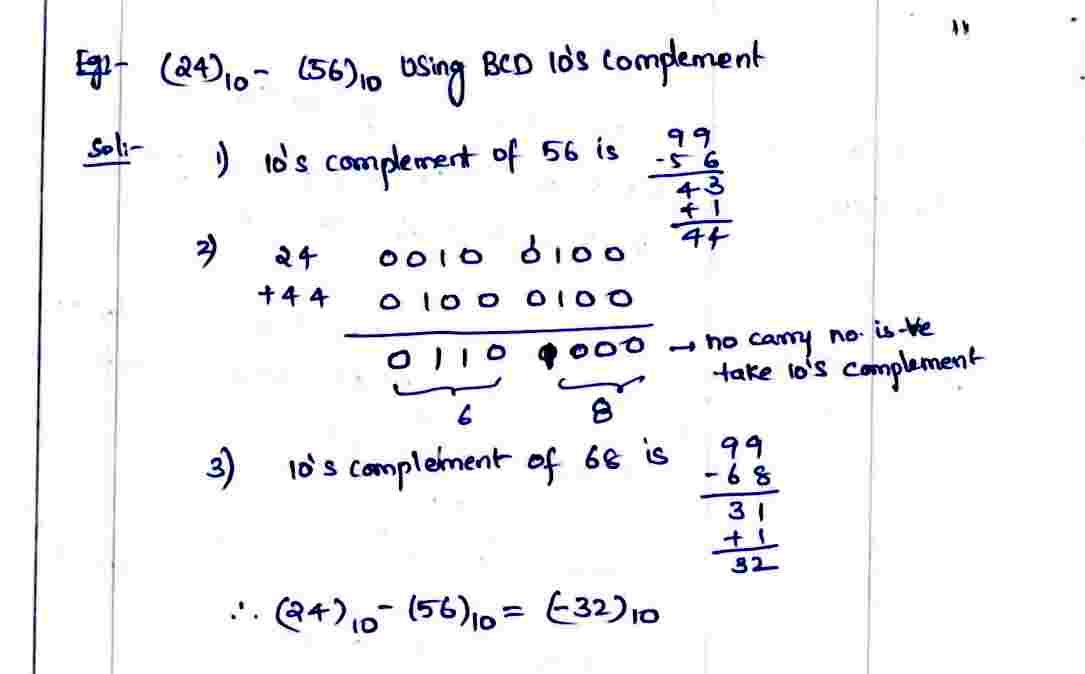 11
Eg:- (24)10 - (56)10 Using BCD 10's complement
Sol:- 1) 10's complement of 56 is
99
-56
43
+1
44
2) 24 0010 0100
+44 0100 0100
0110 1000 → no carry no. is -ve
take 10's complement
6 8
3) 10's complement of 68 is
99
-68
31
+1
32
∴ (24)10 - (56)10 = (-32)10